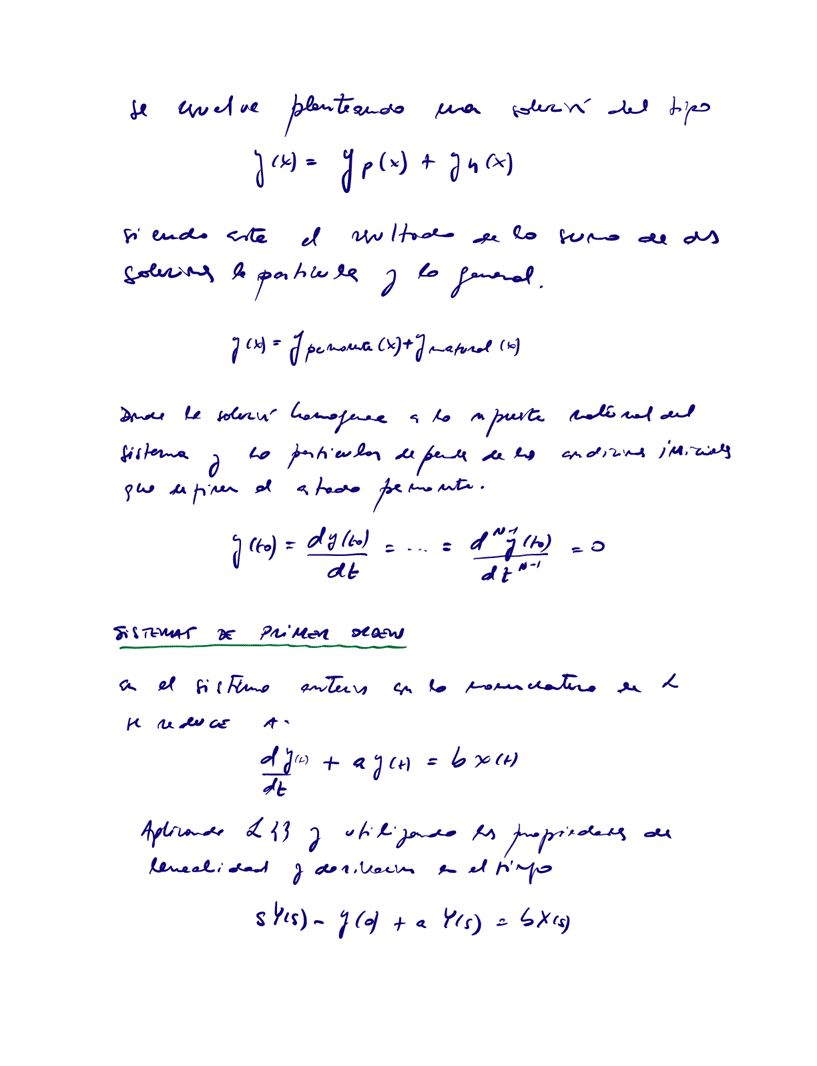 se resuelve planteando una solución del tipo
y(x) = yp(x) + yh(x)
siendo este el resultado de la suma de dos
soluciones la particular y la general.
y(x) = y permanente (x) + y natural (x)
Donde la solución homogenea es la respuesta natural del
sistema y la particular depende de las condiciones iniciales
que definen el estado permanente.
y(t0) = dy(t0)/dt = ... = d^N-1 y(t0)/dt^N-1 = 0
SISTEMAS DE PRIMER ORDEN
en el sistema anterior con la nomenclatura de L
se REDUCE A.
dy(t)/dt + a y(t) = b x(t)
Aplicando L{} y utilizando las propiedades de
linealidad y derivacion en el tiempo
sY(s) - y(0) + a Y(s) = bX(s)